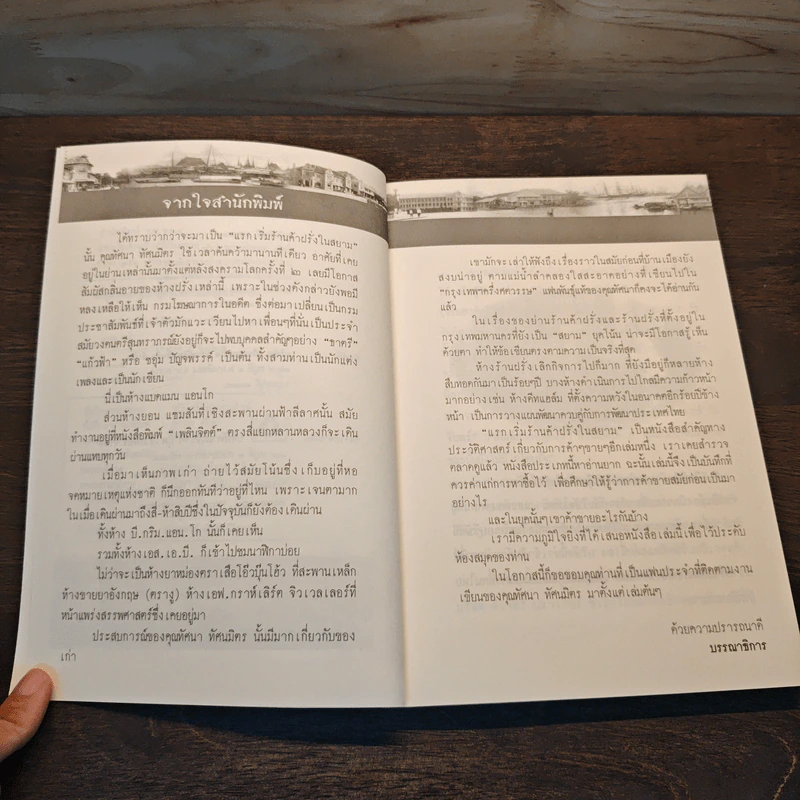 จากใจสำนักพิมพ์
ได้ทราบว่ากว่าจะมาเป็น "แรกเริ่มร้านค้าฝรั่งในสยาม"
นั้น คุณทัศนา ทัศนมิตร ใช้เวลาค้นคว้ามานานทีเดียว อาศัยที่เคย
อยู่ในย่านเหล่านั้นมาตั้งแต่หลังสงครามโลกครั้งที่ ๒ เลยมีโอกาส
สัมผัสกลิ่นอายของห้างฝรั่งเหล่านี้ เพราะในช่วงดังกล่าวยังพอมี
หลงเหลือให้เห็น กรมโฆษณาการในอดีต ซึ่งต่อมาเปลี่ยนเป็นกรม
ประชาสัมพันธ์ที่เจ้าตัวมักแวะเวียนไปหาเพื่อนๆที่นั่นเป็นประจำ
สมัยวงดนตรีสุนทราภรณ์ยังอยู่ก็จะไปพบบุคคลสำคัญๆอย่าง "ธาตรี"
"แก้วฟ้า" หรือ ชอุ่ม ปัญจพรรค์ เป็นต้น ทั้งสามท่านนักแต่ง
เพลงและเป็นนักเขียน
นี่เป็นห้างแบดแมน แอนโก
ส่วนห้างยอน แซมสันที่เชิงสะพานผ่านฟ้าลีลาศนั้น สมัย
ทำงานอยู่ที่หนังสือพิมพ์ "เพลินจิตต์" ตรงสี่แยกหลานหลวงก็จะเดิน
ผ่านแทบทุกวัน
เมื่อมาเห็นภาพเก่า ถ่ายไว้สมัยโน้นซึ่งเก็บอยู่ที่หอ
จดหมายเหตุแห่งชาติ ก็นึกออกทันทีว่าอยู่ที่ไหน เพราะเจนตามาก
ในเมื่อเดินผ่านมาถึงสี่-ห้าสิบปีซึ่งในปัจจุบันก็ยังต้องเดินผ่าน
ทั้งห้าง บี.กริม.แอน.โก นั้นก็เคยเห็น
รวมทั้งห้างเอส.เอ.บี. ก็เข้าไปชมนาฬิกาบ่อย
ไม่ว่าจะเป็นห้างยาหม่องตราเสือโอ๊วบุ้นโฮ้ว ที่สะพานเหล็ก
ห้างขายยาอังกฤษ (ตรางู) ห้างเอฟ.กราห์เลิร์ต จิวเวลเลอร์ที่
หน้าแพร่งสรรพศาสตร์ซึ่งเคยอยู่มา
ประสบการณ์ของคุณทัศนา ทัศนมิตร นั้นมีมากเกี่ยวกับของ
เก่า
เขามักจะเล่าให้ฟังถึงเรื่องราวในสมัยก่อนที่บ้านเมืองยัง
สงบน่าอยู่ ตามแม่น้ำลำคลองใสสะอาดอย่างที่เขียนไปใน
"กรุงเทพาครึ่งศตวรรษ" แฟนพันธุ์แท้ของคุณทัศนาก็คงจะได้อ่านกัน
แล้ว
ในเรื่องของย่านร้านค้าฝรั่งและร้านฝรั่งที่ตั้งอยู่ใน
กรุงเทพมหานครที่ยังเป็น "สยาม" ยุคโน้น น่าจะมีโอกาสรู้เห็น
ด้วยตา ทำให้ข้อเขียนตรงตามความเป็นจริงที่สุด
ห้างร้านฝรั่งเลิกกิจการไปก็มาก ที่ยังมีอยู่ก็หลายห้าง
สืบทอดกันมาเป็นร้อยๆปี บางห้างดำเนินการไปไกลมีความก้าวหน้า
มากอย่างเช่น ห้างดีทแฮล์ม ที่ตั้งความหวังในอนาคตอีกร้อยปีข้าง
หน้า เป็นการวางแผนพัฒนาควบคู่กับการพัฒนาประเทศไทย
"แรกเริ่มร้านค้าฝรั่งในสยาม" เป็นหนังสือสำคัญทาง
ประวัติศาสตร์ เกี่ยวกับการค้าๆขายๆอีกเล่มหนึ่ง เราเคยสำรวจ
ตลาดดูแล้ว หนังสือประเภทนี้หาอ่านยาก ฉะนั้นเล่มนี้จึงเป็นบันทึกที่
ควรค่าแก่การหาซื้อไว้ เพื่อศึกษาให้รู้ว่าการค้าขายสมัยก่อนเป็นมา
อย่างไร
และในยุคนั้นๆเขาค้าขายอะไรกันบ้าง
เรามีความภูมิใจยิ่งที่ได้เสนอหนังสือเล่มนี้เพื่อไว้ประดับ
ห้องสมุดของท่าน
ในโอกาสนี้ก็ขอขอบคุณท่านที่เป็นแฟนประจำที่ติดตามงาน
เขียนของคุณทัศนา ทัศนมิตร มาตั้งแต่เล่มต้นๆ
ด้วยความปรารถนาดี
บรรณาธิการ